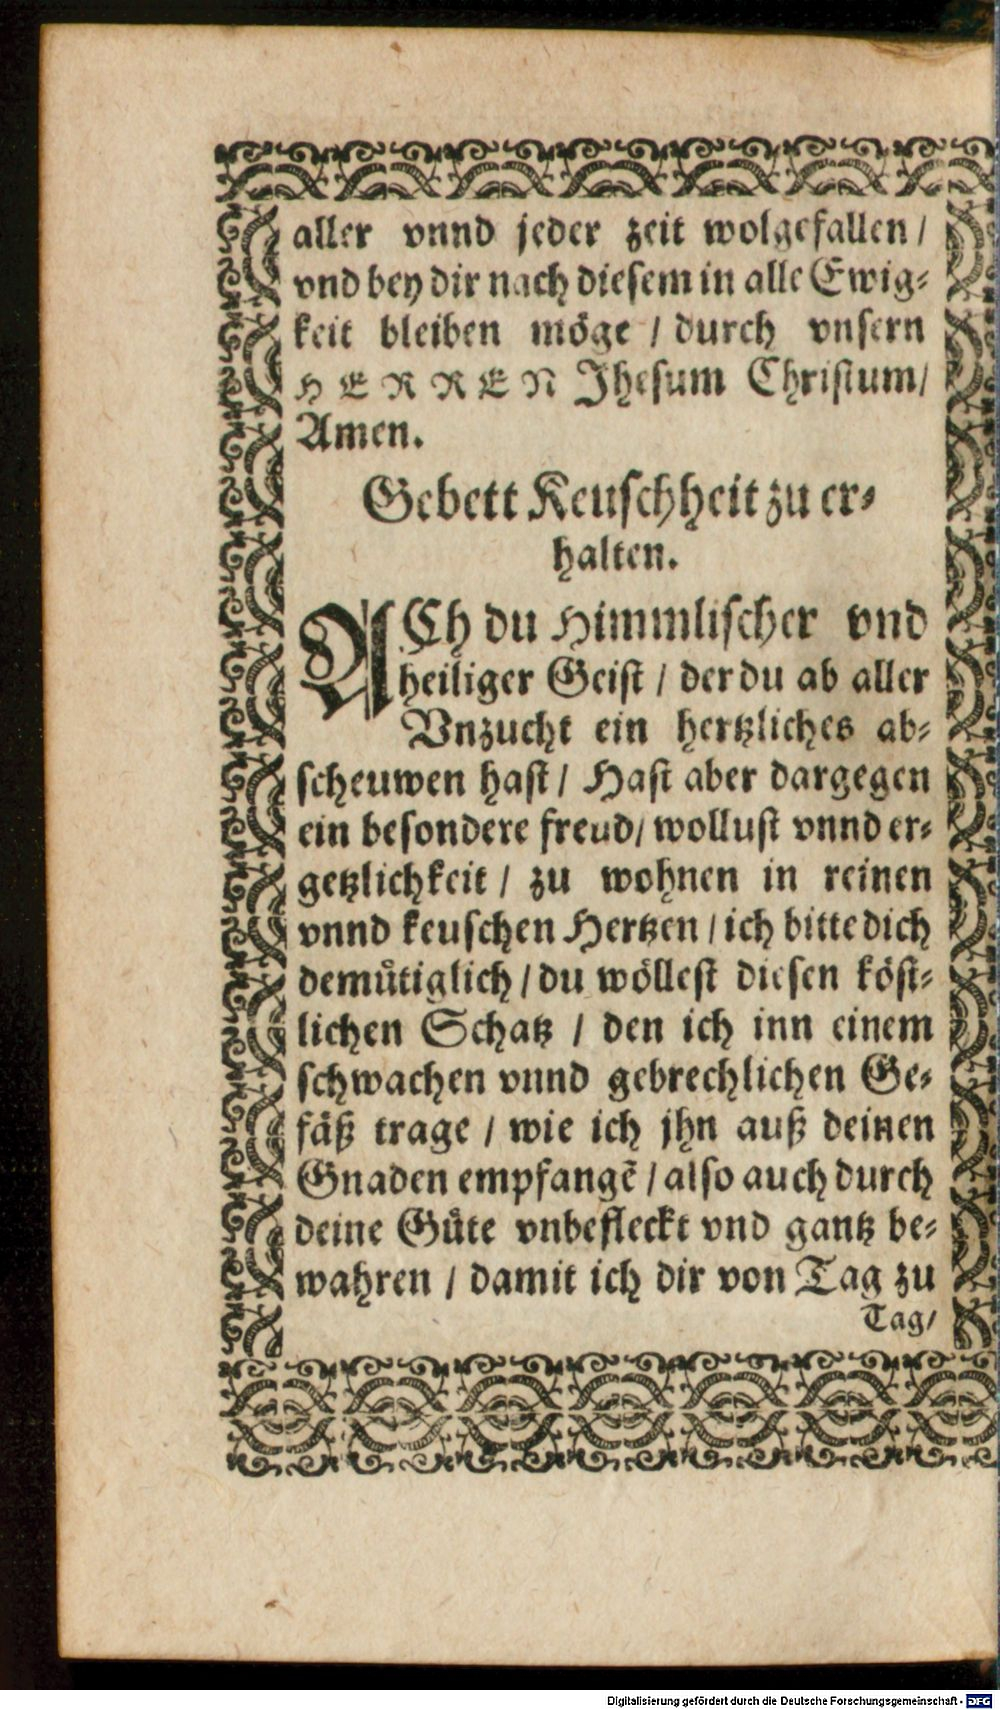 aller vnnd jeder zeit wolgefallen /
vnd bey dir nach diesem in alle Ewig⸗
keit bleiben möge / durch vnsern
HERREN Jhesum Christum /
Amen.
Gebett Keuschheit zu er⸗
halten.
ACh du Himmlischer vnd
heiliger Geist / der du ab aller
Vnzucht ein hertzliches ab⸗
scheuwen hast / Hast aber dargegen
ein besondere freud / wollust vnnd er⸗
getzlichkeit / zu wohnen in reinen
vnnd keuschen Hertzen / ich bitte dich
demütiglich / du wöllest diesen köst⸗
lichen Schatz / den ich inn einem
schwachen vnnd gebrechlichen Ge⸗
fäß trage / wie ich jhn auß deinen
Gnaden empfangẽ / also auch durch
deine Güte vnbefleckt vnd gantz be⸗
wahren / damit ich dir von Tag zu
Tag /
Digitalisierung gefördert durch die Deutsche Forschungsgemeinschaft - DFG